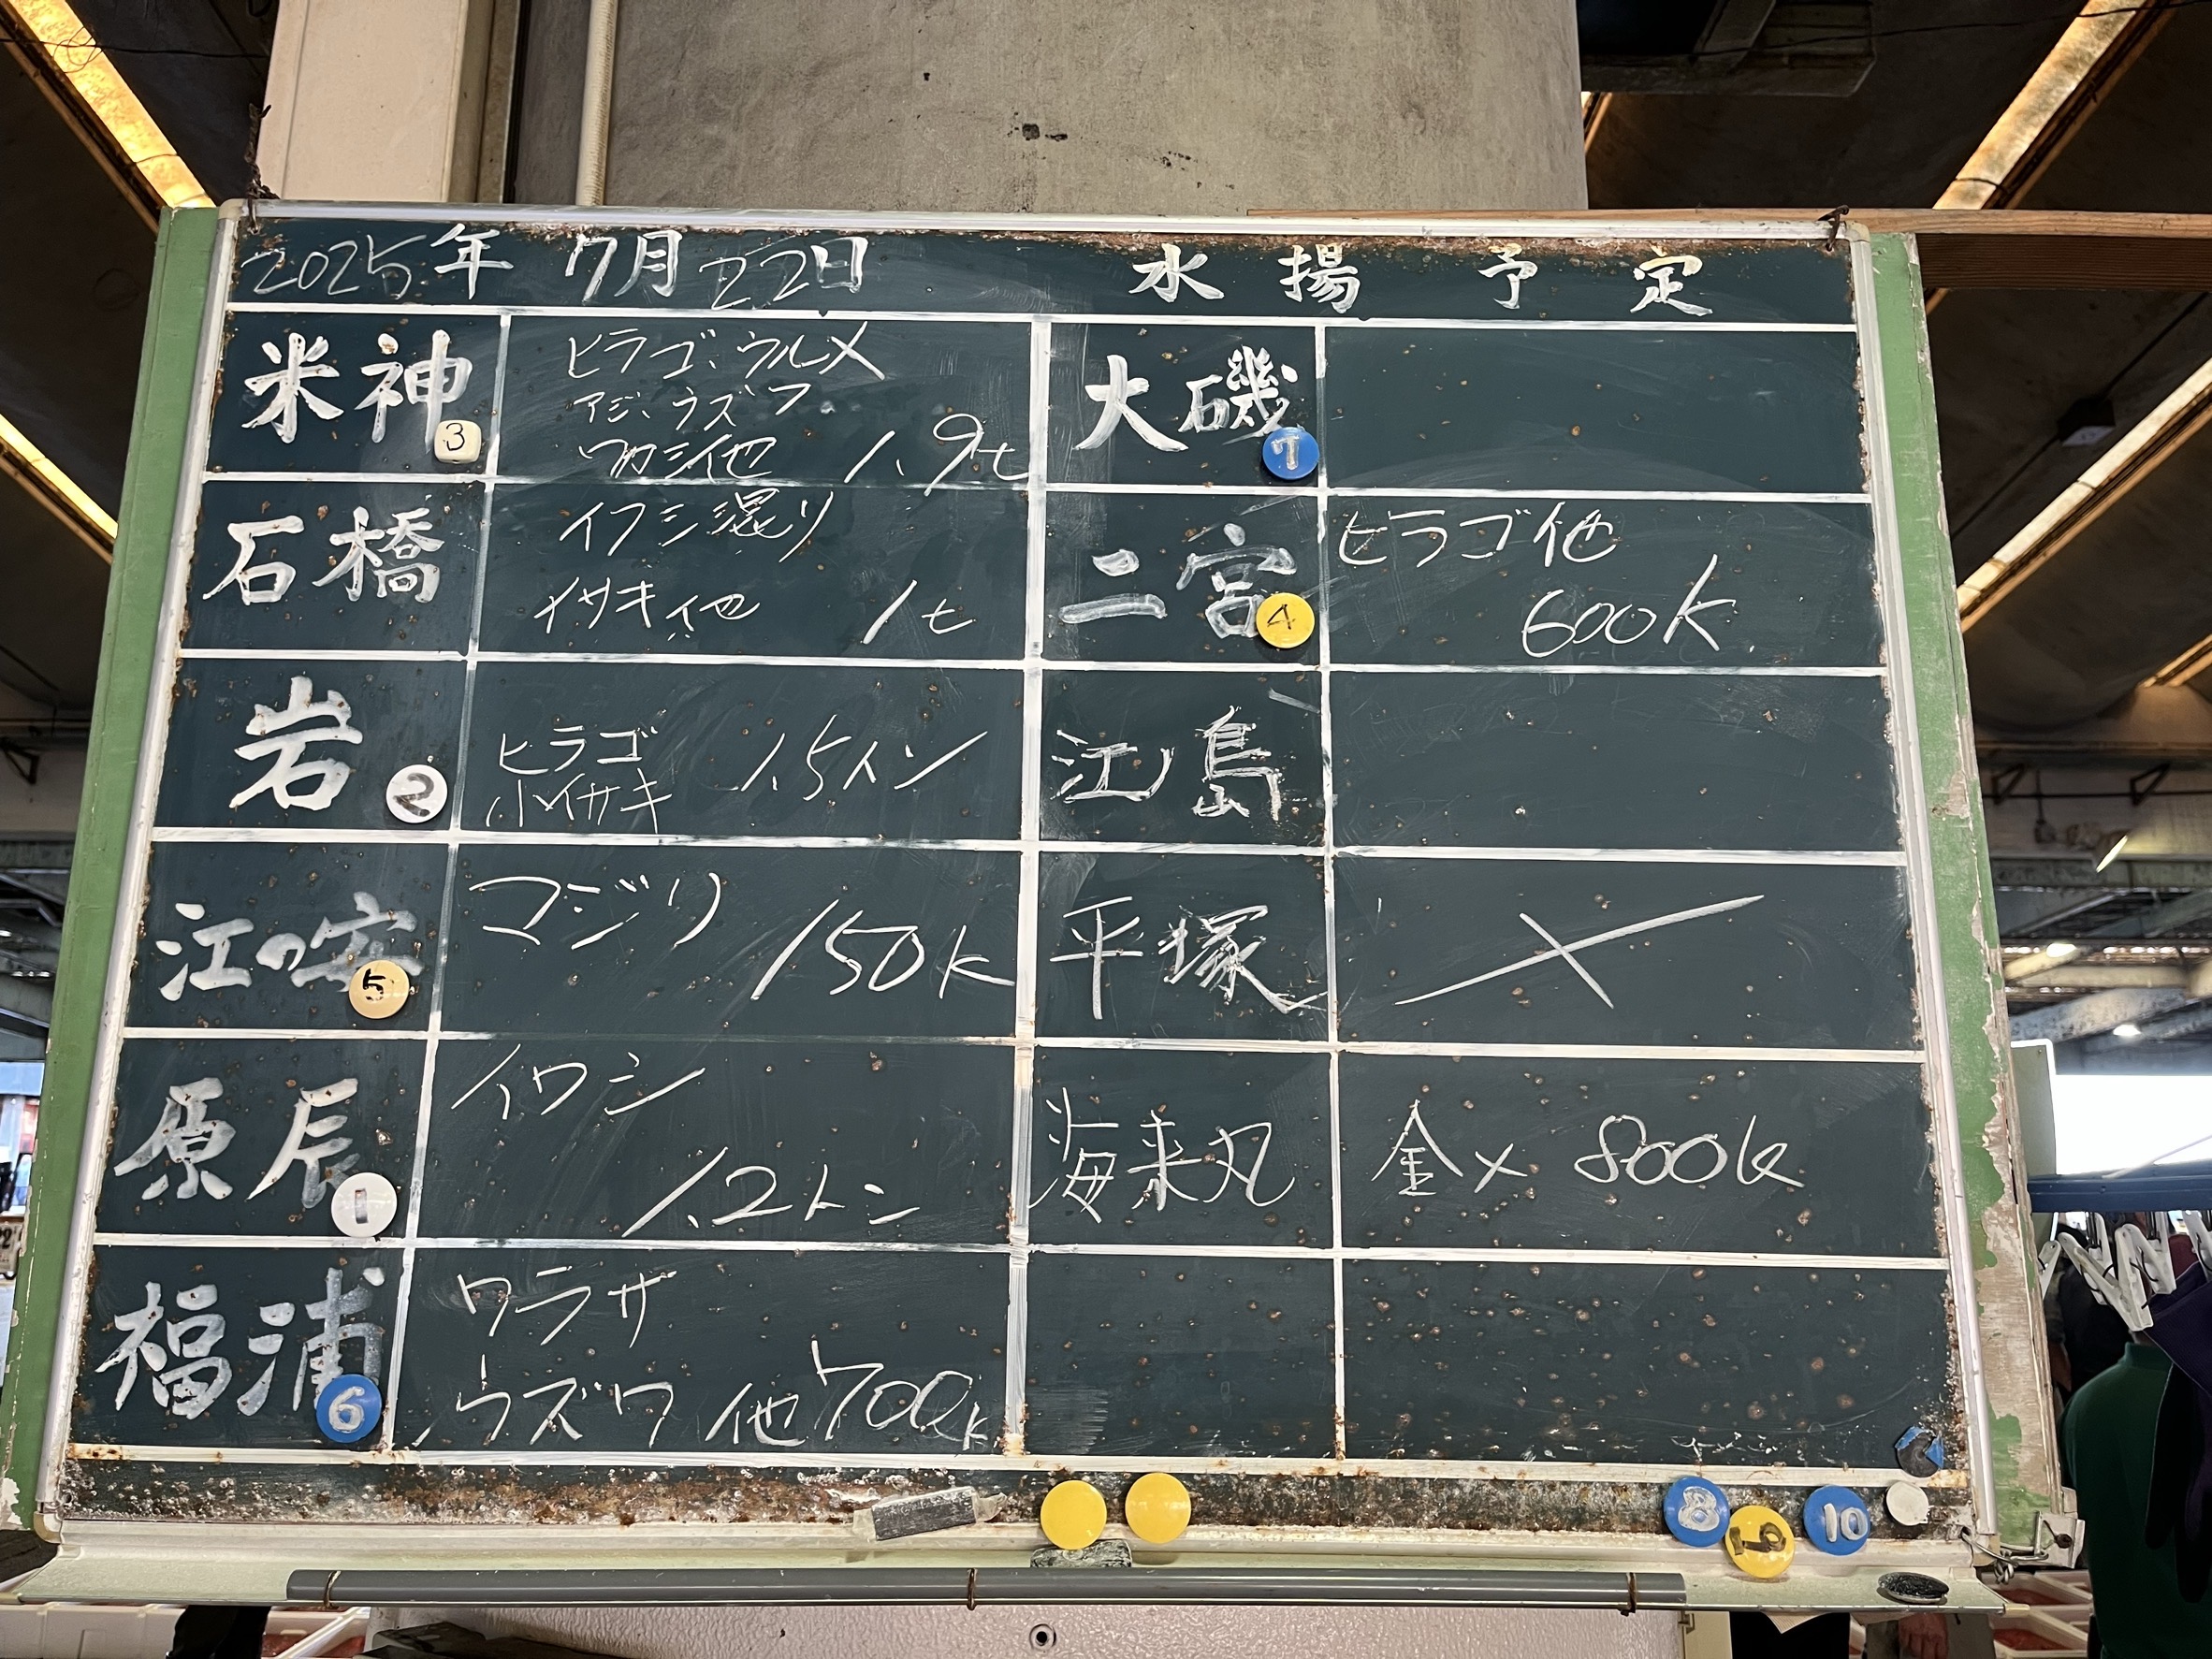 2025年 7月22日 水揚予定
米神 3
ヒラゴ、ウルメ
アジ、ウズワ
ワカシ他 1.9t
石橋
イワシ混り
イサキ他 1t
岩 2
ヒラゴ 1.5トン
小イサキ
江の安 5
マジリ
150k
原辰 1
イワシ
1.2トン
福浦 6
ワラサ
ウズワ他 700k
大磯 7
二宮 4
ヒラゴ他
600K
江島
平塚 ×
海来丸 金メ 800k
8 9 10